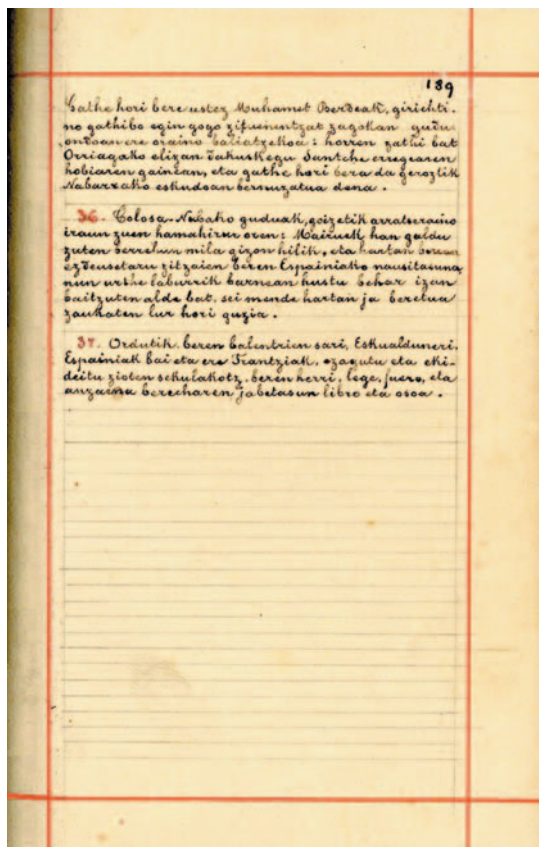 189
Gathe hori bere ustez Muhamet Berdeak, girichti-
no gathibo egin gogo zituenentzat zagokan gudu
ondoan ere oraino baliatzekoa: horren zathi bat
Orriagako elizan dakuskegu Santche erregearen
hobiaren gainean, eta gathe hori bera da geroztik
Nabarrako eskudoan berruzatua dena.
36. Tolosa-Nabako guduak, goizetik arratseraino
iraun zuen hamahirur oren: Mairuek han galdu
zuten berrehun mila gizon hilik, eta hartan
ezdeusetaru zitzaien beren Espainiako nausitasuna
nun urthe laburrik barnean hustu behar izan
baitzuten alde bat, sei mende hartan ja beretua
zaukaten lur hori guzia.
37. Ordutik beren balentrien sari, Eskualduneri,
Espainiak bai eta ere Frantziak, ezagutu eta eki-
deitu zioten sekulakotz, beren herri, lege, fuero, eta
anzaina berecharen jabetasun libro eta osoa.